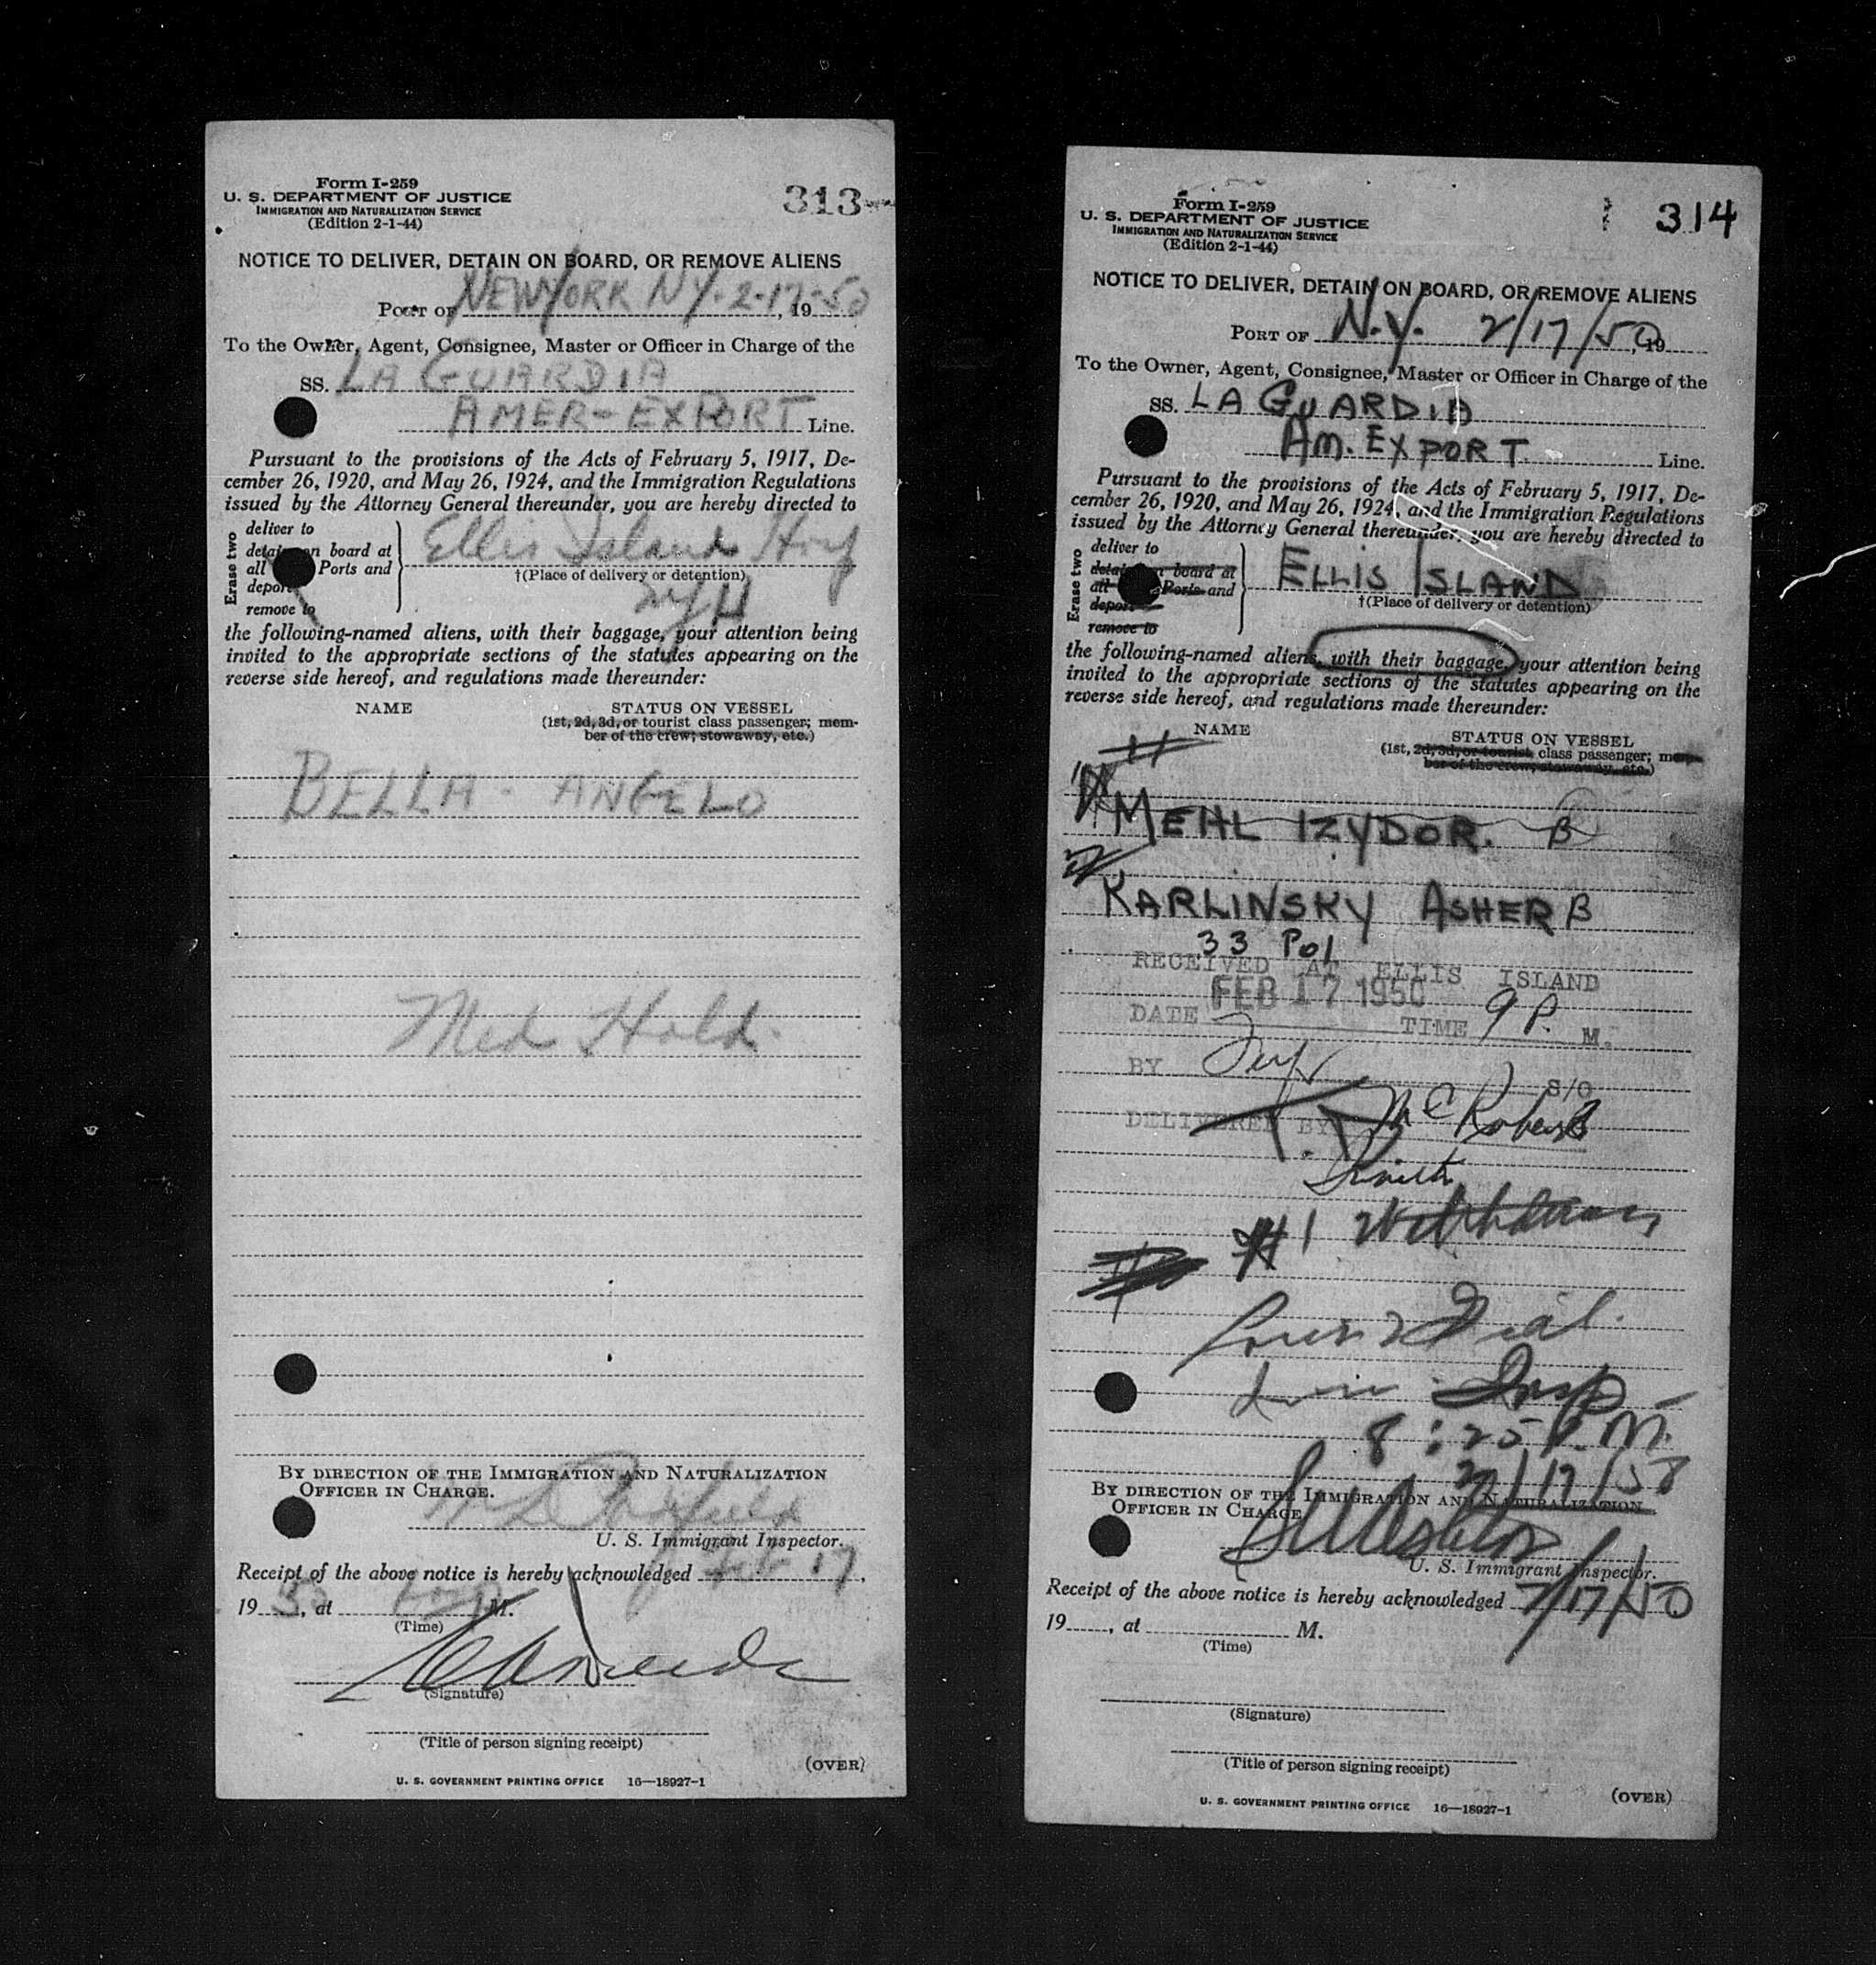 Form I-259
U. S. DEPARTMENT OF JUSTICE
IMMIGRATION AND NATURALIZATION SERVICE
(Edition 2-1-44)
313
NOTICE TO DELIVER, DETAIN ON BOARD, OR REMOVE ALIENS
PORT OF NEW YORK NY. 2-17-50, 19
To the Owner, Agent, Consignee, Master or Officer in Charge of the
SS. LA GUARDIA
AMER-EXPORT Line.
Pursuant to the provisions of the Acts of February 5, 1917, De-
cember 26, 1920, and May 26, 1924, and the Immigration Regulations
issued by the Attorney General thereunder, you are hereby directed to
Erase two
deliver to
detain on board at
all Ports and
deport
remove to
Ellis Island
†(Place of delivery or detention)
the following-named aliens, with their baggage, your attention being
invited to the appropriate sections of the statutes appearing on the
reverse side hereof, and regulations made thereunder:
NAME
STATUS ON VESSEL
(1st, 2d, 3d, or tourist class passenger; mem-
ber of the crew; stowaway, etc.)
BELLA - ANGELO
Med Hold.
BY DIRECTION OF THE IMMIGRATION AND NATURALIZATION
OFFICER IN CHARGE.
U. S. Immigrant Inspector.
Receipt of the above notice is hereby acknowledged Feb 17,
19 50, at M.
(Time)
(Signature)
(Title of person signing receipt)
(OVER)
U. S. GOVERNMENT PRINTING OFFICE 16—18927-1
Form I-259
U. S. DEPARTMENT OF JUSTICE
IMMIGRATION AND NATURALIZATION SERVICE
(Edition 2-1-44)
314
NOTICE TO DELIVER, DETAIN ON BOARD, OR REMOVE ALIENS
PORT OF N.Y. 2/17/50, 19
To the Owner, Agent, Consignee, Master or Officer in Charge of the
SS. LA GUARDIA
AM. EXPORT Line.
Pursuant to the provisions of the Acts of February 5, 1917, De-
cember 26, 1920, and May 26, 1924, and the Immigration Regulations
issued by the Attorney General thereunder, you are hereby directed to
Erase two
deliver to
detain on board at
all Ports and
deport
remove to
ELLIS ISLAND
†(Place of delivery or detention)
the following-named aliens, with their baggage, your attention being
invited to the appropriate sections of the statutes appearing on the
reverse side hereof, and regulations made thereunder:
NAME
STATUS ON VESSEL
(1st, 2d, 3d, or tourist class passenger; mem-
ber of the crew; stowaway, etc.)
MEHL IZYDOR. B
KARLINSKY ASHER B
33 Pol
RECEIVED AT ELLIS ISLAND
FEB 17 1950
DATE TIME 9 P. M.
BY S/O
DELIVERED BY McRoberts
Smith
#1
Insp
8:25 P.M.
BY DIRECTION OF THE IMMIGRATION AND NATURALIZATION
OFFICER IN CHARGE
U. S. Immigrant Inspector.
Receipt of the above notice is hereby acknowledged 2/17/50
19, at M.
(Time)
(Signature)
(Title of person signing receipt)
(OVER)
U. S. GOVERNMENT PRINTING OFFICE 16—18927-1